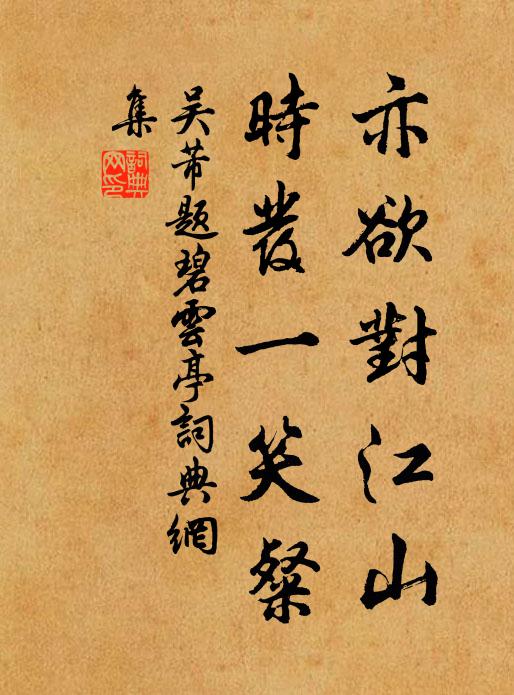 亦欲對江山
時發一笑粲
吳芾題碧雲亭詞典網
集
詞典
网印